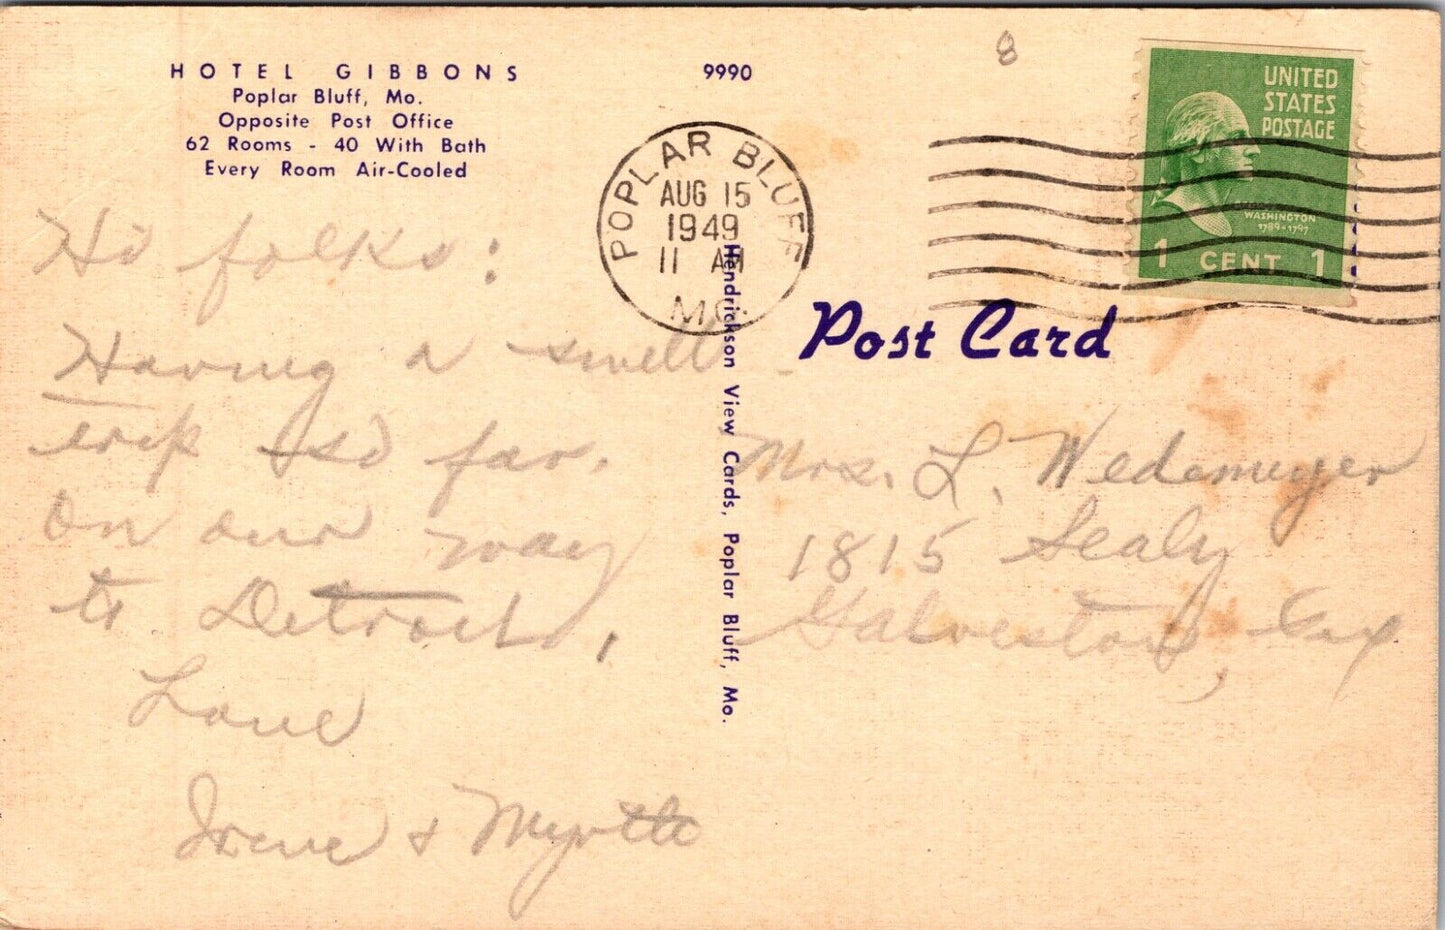 HOTEL GIBBONS
Poplar Bluff, Mo.
Opposite Post Office
62 Rooms - 40 With Bath
Every Room Air-Cooled
9990
8
POPLAR BLUFF
AUG 15
1949
11 AM
MO.
UNITED
STATES
POSTAGE
WASHINGTON
1789-1797
1 CENT 1
Post Card
Hendrickson View Cards, Poplar Bluff, Mo.
Hi folks:
Having a swell
trip so far.
On our way
to Detroit.
Love
Irene & Myrtle
Mrs. L. Wedemeyer
1815 Sealy
Galveston, Tex